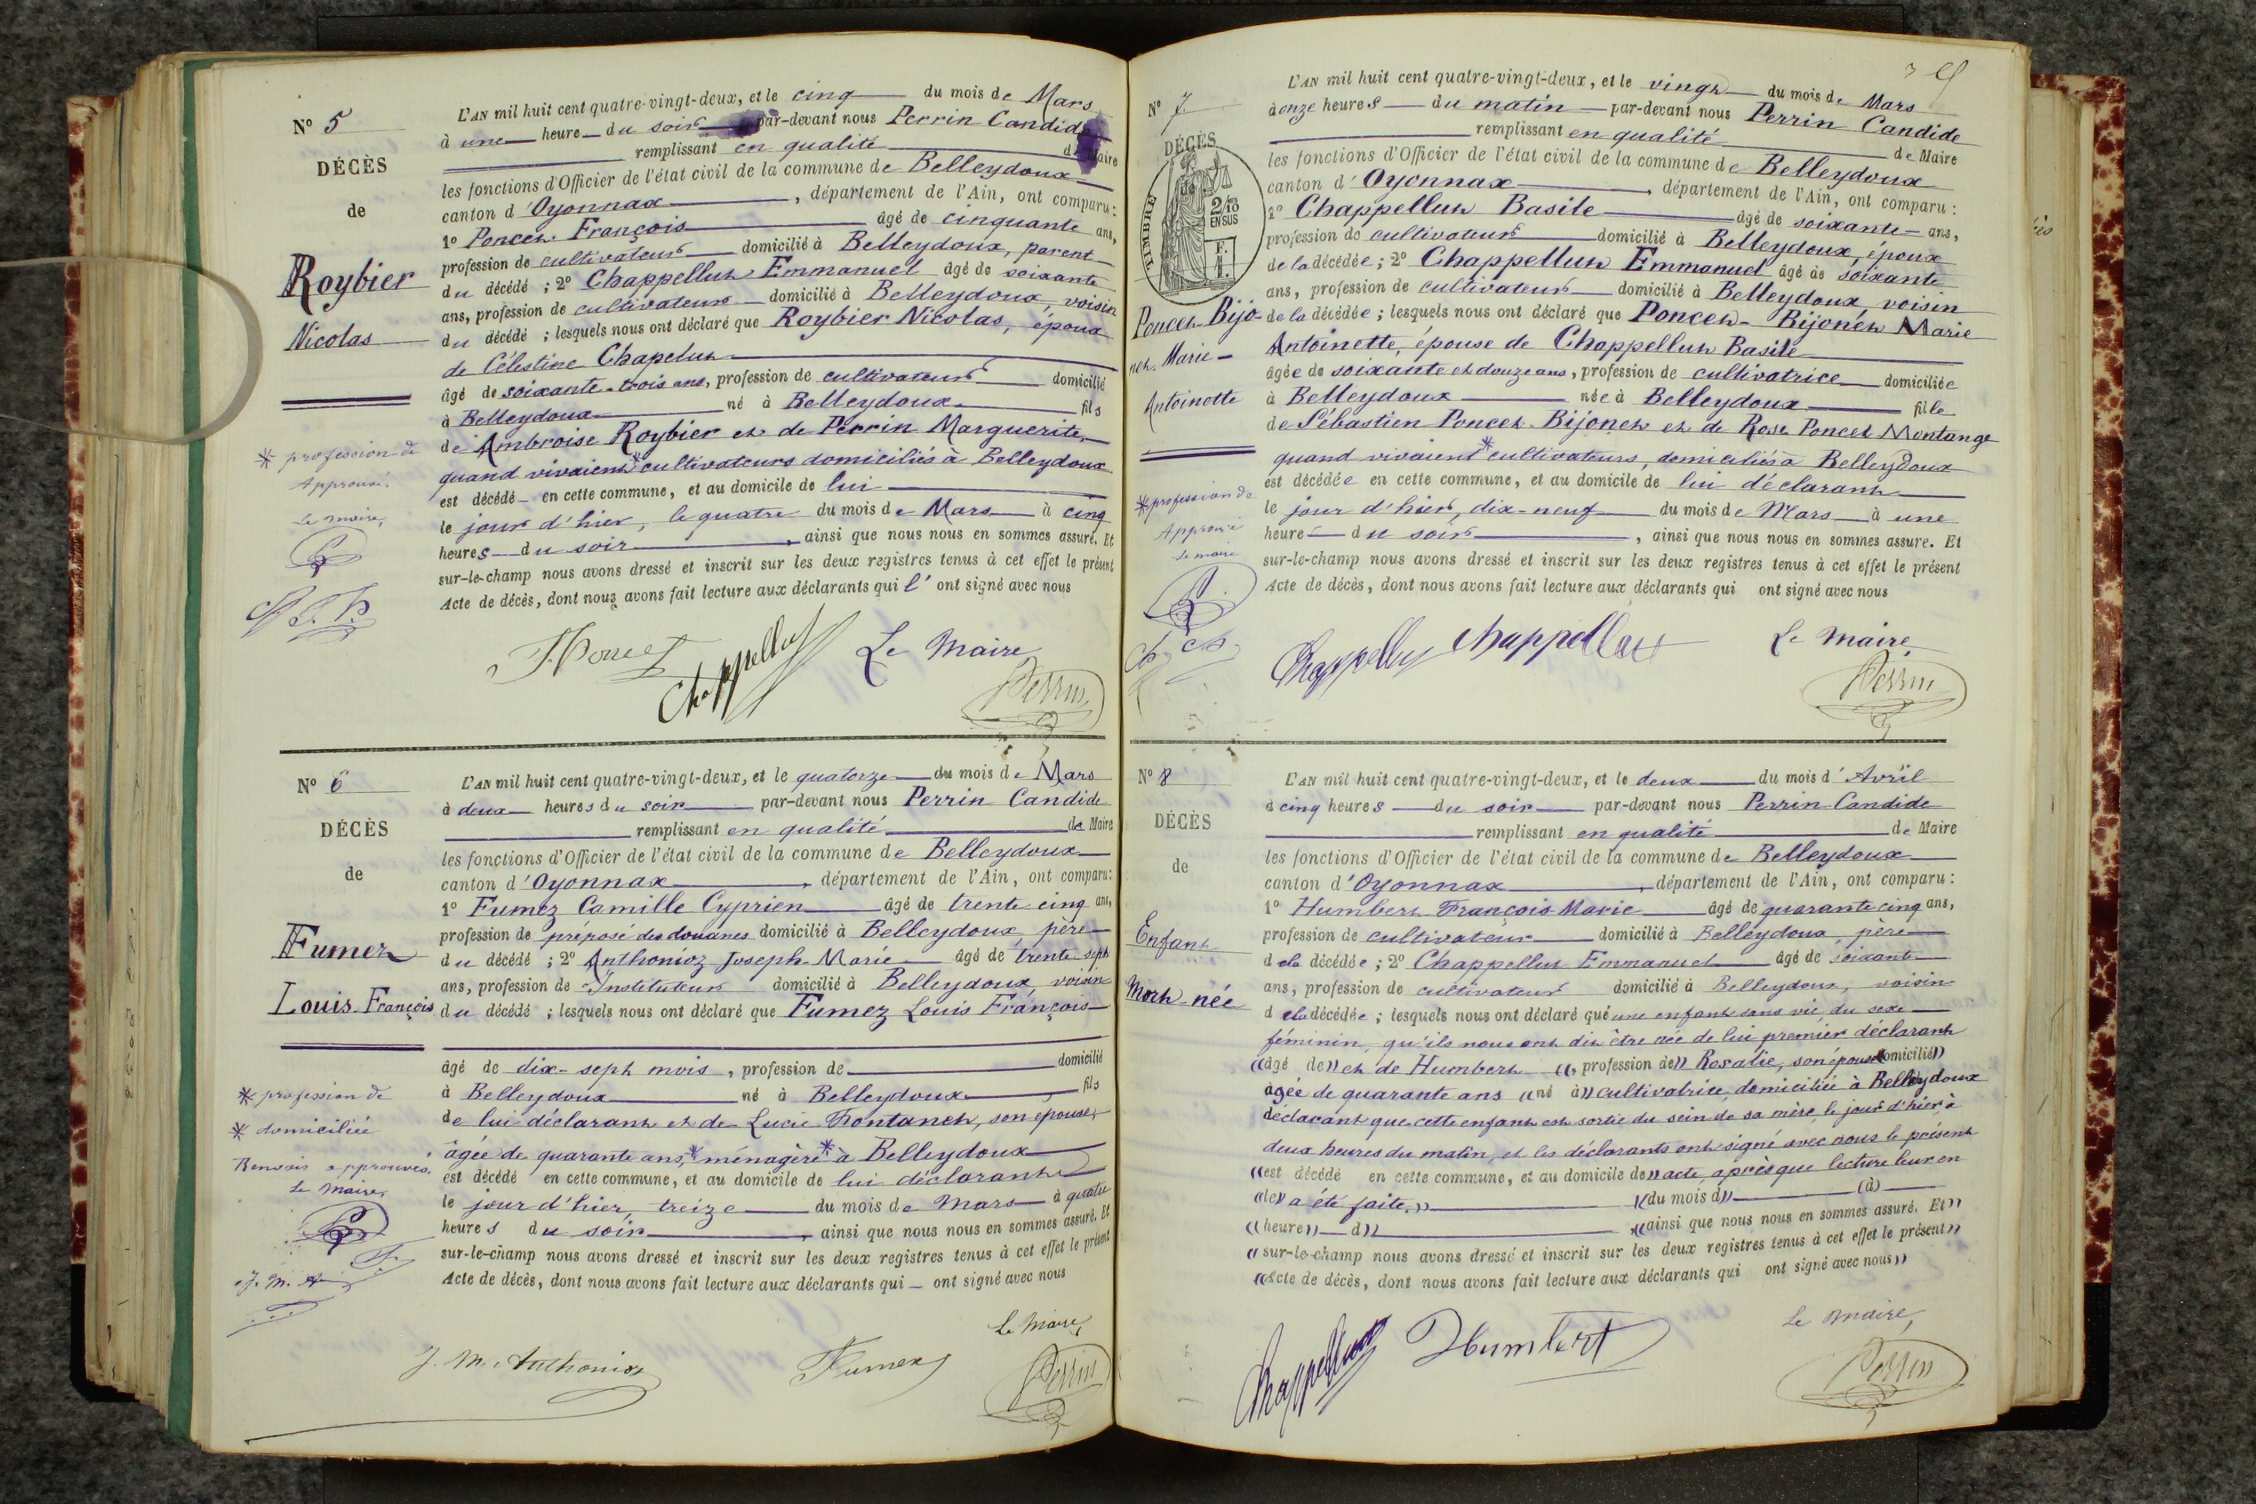 N° 5
DÉCÈS
de
Roybier
Nicolas
* profession de
Approuvé.
Le Maire,
L'AN mil huit cent quatre-vingt-deux, et le cinq du mois de Mars
à une heure du soir par-devant nous Perrin Candide
remplissant en qualité de Maire
les fonctions d'Officier de l'état civil de la commune de Belleydoux
canton d'Oyonnax, département de l'Ain, ont comparu:
1° Poncet François âgé de cinquante ans,
profession de cultivateur domicilié à Belleydoux, parent
du décédé ; 2° Chappellut Emmanuel âgé de soixante
ans, profession de cultivateur domicilié à Belleydoux, voisin
du décédé ; lesquels nous ont déclaré que Roybier Nicolas, époux
de Célestine Chapelut
âgé de soixante-trois ans, profession de cultivateur domicilié
à Belleydoux né à Belleydoux fils
de Ambroise Roybier et de Perrin Marguerite,
quand vivaient * cultivateurs domiciliés à Belleydoux
est décédé en cette commune, et au domicile de lui
le jour d'hier, le quatre du mois de Mars à cinq
heures du soir, ainsi que nous nous en sommes assuré. Et
sur-le-champ nous avons dressé et inscrit sur les deux registres tenus à cet effet le présent
Acte de décès, dont nous avons fait lecture aux déclarants qui l'ont signé avec nous
Poncet Chappellut Le Maire,
Perrin
N° 6
DÉCÈS
de
Fumez
Louis-François
* profession de
* domiciliée
Renvois approuvés.
Le Maire,
J. M. A.
L'AN mil huit cent quatre-vingt-deux, et le quatorze du mois de Mars
à deux heures du soir par-devant nous Perrin Candide
remplissant en qualité de Maire
les fonctions d'Officier de l'état civil de la commune de Belleydoux
canton d'Oyonnax, département de l'Ain, ont comparu:
1° Fumez Camille Cyprien âgé de trente cinq ans,
profession de préposé des douanes domicilié à Belleydoux père
du décédé ; 2° Anthonioz Joseph-Marie âgé de trente-sept
ans, profession de Instituteur domicilié à Belleydoux, voisin
du décédé ; lesquels nous ont déclaré que Fumez Louis François
âgé de dix-sept mois, profession de domicilié
à Belleydoux né à Belleydoux fils
de lui déclarant et de Lucie Fontanet, son épouse,
âgée de quarante ans,* ménagère * à Belleydoux
est décédé en cette commune, et au domicile de lui déclarant
le jour d'hier, treize du mois de Mars à quatre
heures du soir, ainsi que nous nous en sommes assuré. Et
sur-le-champ nous avons dressé et inscrit sur les deux registres tenus à cet effet le présent
Acte de décès, dont nous avons fait lecture aux déclarants qui ont signé avec nous
Le Maire,
J. M. Anthonioz Fumez Perrin
N° 7
DÉCÈS
TIMBRE
2/10 EN SUS
Poncet-Bijo-
net Marie-
Antoinette
* profession de
Approuvé
Le maire
L'AN mil huit cent quatre-vingt-deux, et le vingt du mois de Mars
à onze heures du matin par-devant nous Perrin Candide
remplissant en qualité de Maire
les fonctions d'Officier de l'état civil de la commune de Belleydoux
canton d'Oyonnax, département de l'Ain, ont comparu :
1° Chappellut Basile âgé de soixante ans,
profession de cultivateur domicilié à Belleydoux, époux
de la décédée ; 2° Chappellut Emmanuel âgé de soixante
ans, profession de cultivateur domicilié à Belleydoux, voisin
de la décédée ; lesquels nous ont déclaré que Poncet-Bijonet Marie
Antoinette, épouse de Chappellut Basile
âgée de soixante et douze ans, profession de cultivatrice domiciliée
à Belleydoux née à Belleydoux fille
de Sébastien Poncet-Bijonet et de Rose Poncet Montange
quand vivaient * cultivateurs, domiciliés à Belleydoux
est décédée en cette commune, et au domicile de lui déclarant
le jour d'hier, dix-neuf du mois de Mars à une
heure du soir, ainsi que nous nous en sommes assuré. Et
sur-le-champ nous avons dressé et inscrit sur les deux registres tenus à cet effet le présent
Acte de décès, dont nous avons fait lecture aux déclarants qui ont signé avec nous
Chappellut Chappellut Le Maire,
Perrin
N° 8
DÉCÈS
de
Enfant
Mort-née
L'AN mil huit cent quatre-vingt-deux, et le deux du mois d'Avril
à cinq heures du soir par-devant nous Perrin Candide
remplissant en qualité de Maire
les fonctions d'Officier de l'état civil de la commune de Belleydoux
canton d'Oyonnax, département de l'Ain, ont comparu :
1° Humbert François Marie âgé de quarante cinq ans,
profession de cultivateur domicilié à Belleydoux père
de la décédée ; 2° Chappellut Emmanuel âgé de soixante
ans, profession de cultivateur domicilié à Belleydoux, voisin
de la décédée ; lesquels nous ont déclaré que une enfant sans vie, du sexe
féminin, qu'ils nous ont dit être née de lui premier déclarant
((âgé de)) et de Humbert ((, profession de)) Rosalie, son épouse ((domicilié))
âgée de quarante ans ((né à)) cultivatrice domiciliée à Belleydoux
déclarant que cette enfant est sortie du sein de sa mère, le jour d'hier à
deux heures du matin, et les déclarants ont signé avec nous le présent
((est décédé en cette commune, et au domicile de)) acte, après que lecture leur en
((le)) a été faite.)) ((du mois d)) (à)
((heure)) d)) ((ainsi que nous nous en sommes assuré. Et))
((sur-le-champ nous avons dressé et inscrit sur les deux registres tenus à cet effet le présent))
((Acte de décès, dont nous avons fait lecture aux déclarants qui ont signé avec nous))
Chappellut Humbert Le Maire,
Perrin